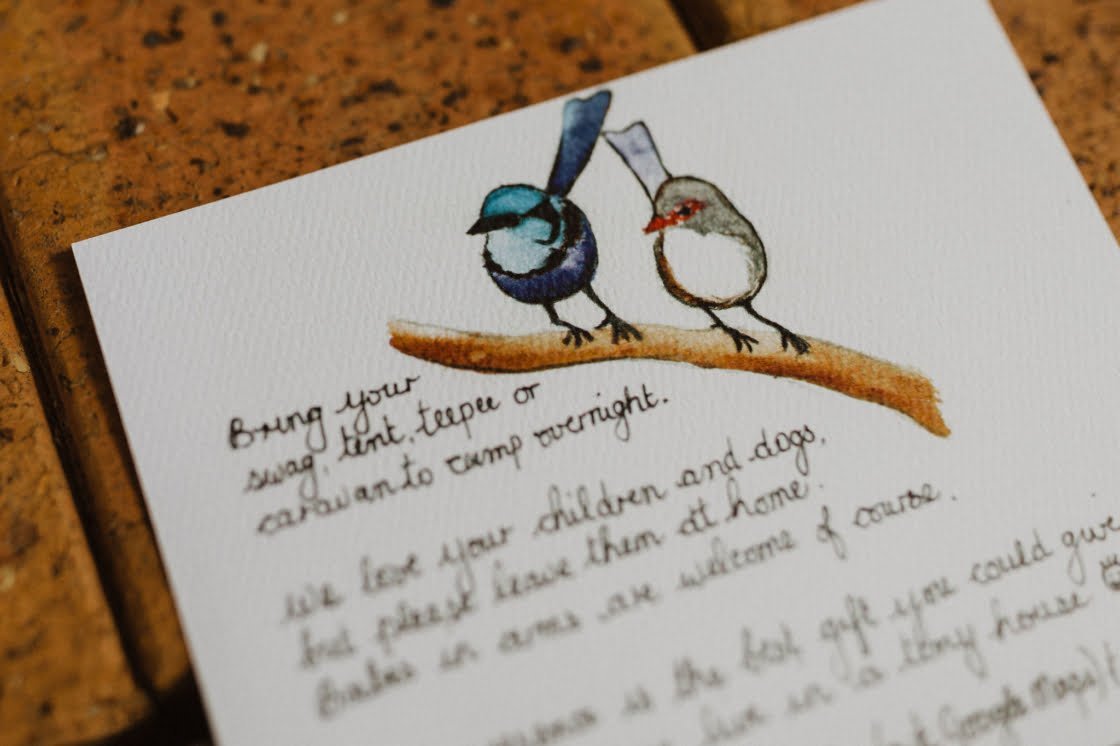 Bring your
swag, tent, teepee or
caravan to camp overnight.
We love your children and dogs,
but please leave them at home.
Babes in arms are welcome of course.
is the best gift you could give
live in a tiny house
Google Maps)